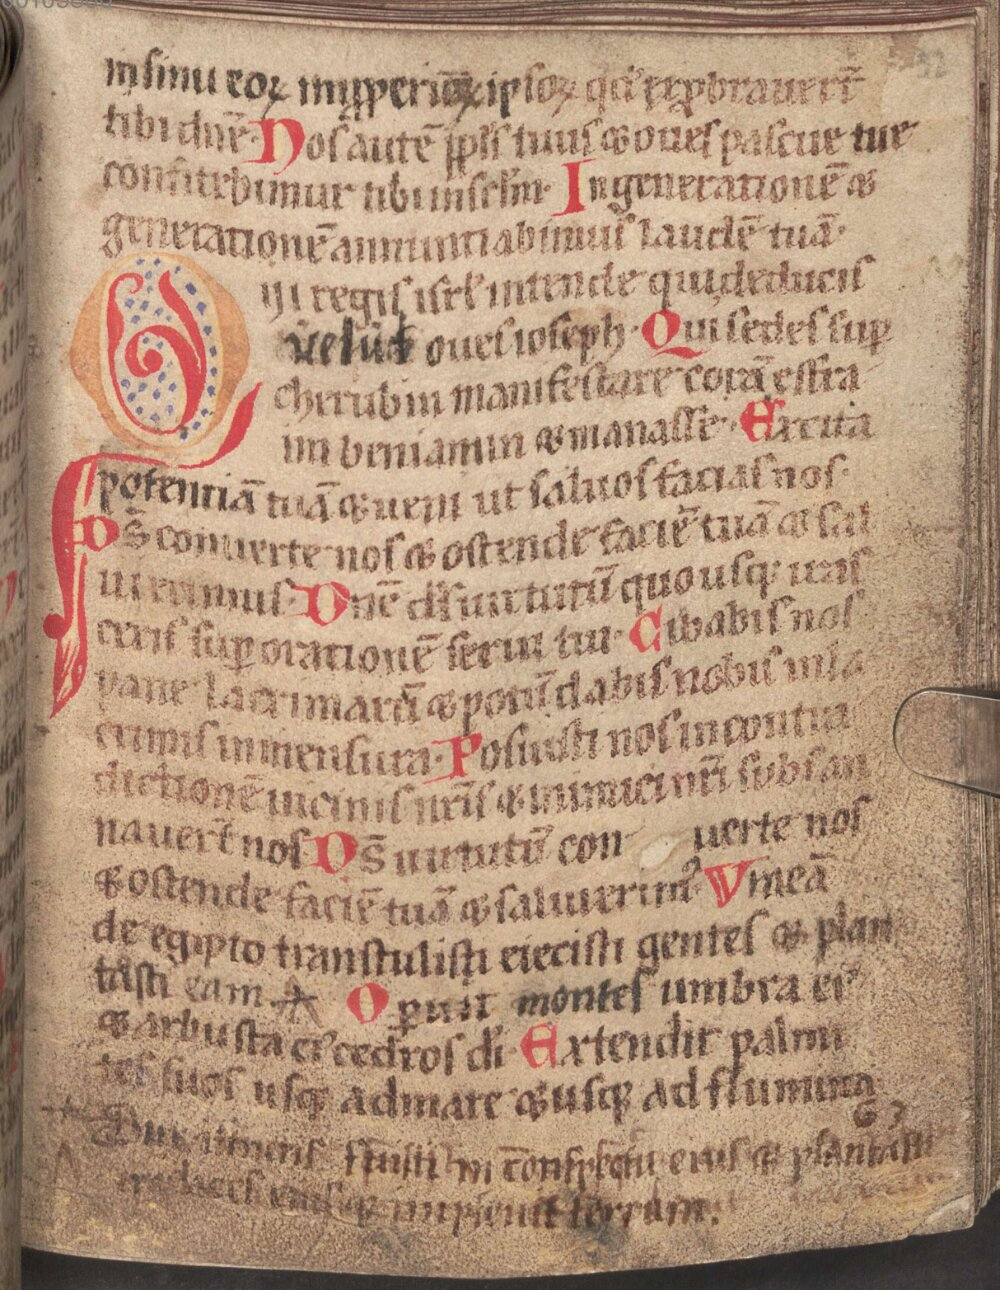 in sinu eoꝝ imꝓperiū ipsoꝝ qd exꝓbraverūt
tibi dnē. Nos autē ppls tuus & oves pascue tue
confitebimur tibi in sclm. In generationē &
generationē annuntiabimus laudē tuā.
Qui regis isrl intende qui deducis
velut oves ioseph. Qui sedes sup
cherubin manifestare corā effra
im beniamin & manasse. Excita
potentiā tuā & veni ut salvos facias nos.
Ds converte nos & ostende faciē tuā & sal
vi erimus. Dne ds virtutū quousq iras
ceris sup orationē servi tui. Cibabis nos
pane lacrimarū & potū dabis nobis in la
crimis in mensura. Posuisti nos in contra
dictionē vicinis nris & inimici nri subsan
naverūt nos. Ds virtutū con verte nos
& ostende faciē tuā & salvi erim⁹. Vineā
de egipto transtulisti eiecisti gentes & plan
tasti eam Operuit montes umbra ei⁹
& arbusta ei⁹ cedros di. Extendit palmi
tes suos usq ad mare & usq ad flumina
63
Dux itineris fuisti in conspectu eius & plantasti
radices eius & implevit terram.